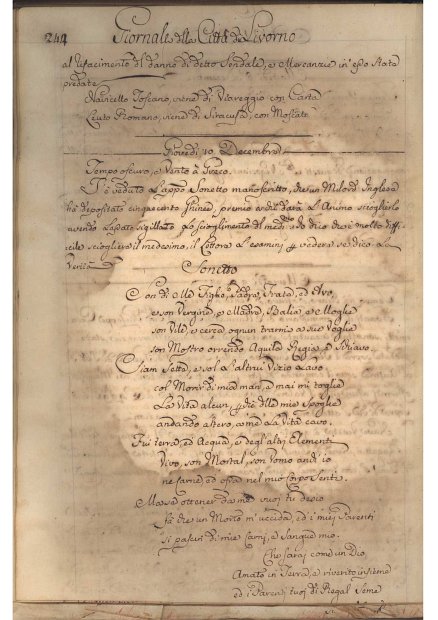 244 Giornale della Città di Livorno
al refacimento del danno di detto Sendale, e Mercanzie in esso State
predate
Navicello Toscano, viene di Viareggio con Carta
Leuto Romano, viene di Siracusa, con Moscato
Giovedì 10 Decembre
Tempo oscuro, e Vento à Greco.
Si è veduto Sonetto manoscritto, che un Milord Inglese
hà depositato cinquecento premio à chi darà L'Animo sciogliere
avendo Lasciato sigillato Lo scioglimento del med.mo Io dico che è molto diffi-
cile sciogliere il medesimo, il Lettore L'esamini vedere se dico La
Verità
Sonetto
Son di me Figlio, Padre, Frate, ed Avo,
e son Vergine, e Madre, Balia, e Moglie
son Vile, e cerca ognun trarmi a sue Voglie
son Mostro orrendo Aquila Regia, e Schiavo.
altrui Vizio Lavo
col di mia man, e mai mi toglie
La Vita alcun, delle mie Spoglie
andando altero, come La Vità cavo.
terra, ed Acqua, e degl'altri Elementi
Vivo, son Mortal, son Pomo anch'io
ne Carne, ed ossa nel mio Corpo senti.
Ma se ottener da me vuoi tu desio
fà che un Morto m'uccida, ed i miei Parenti
si pascin di mie Carni, e Sangue mio.
Che sarai come un Dio
Amato in Terra, e riverito insieme
ed i Parenti tuoi di Regal Seme